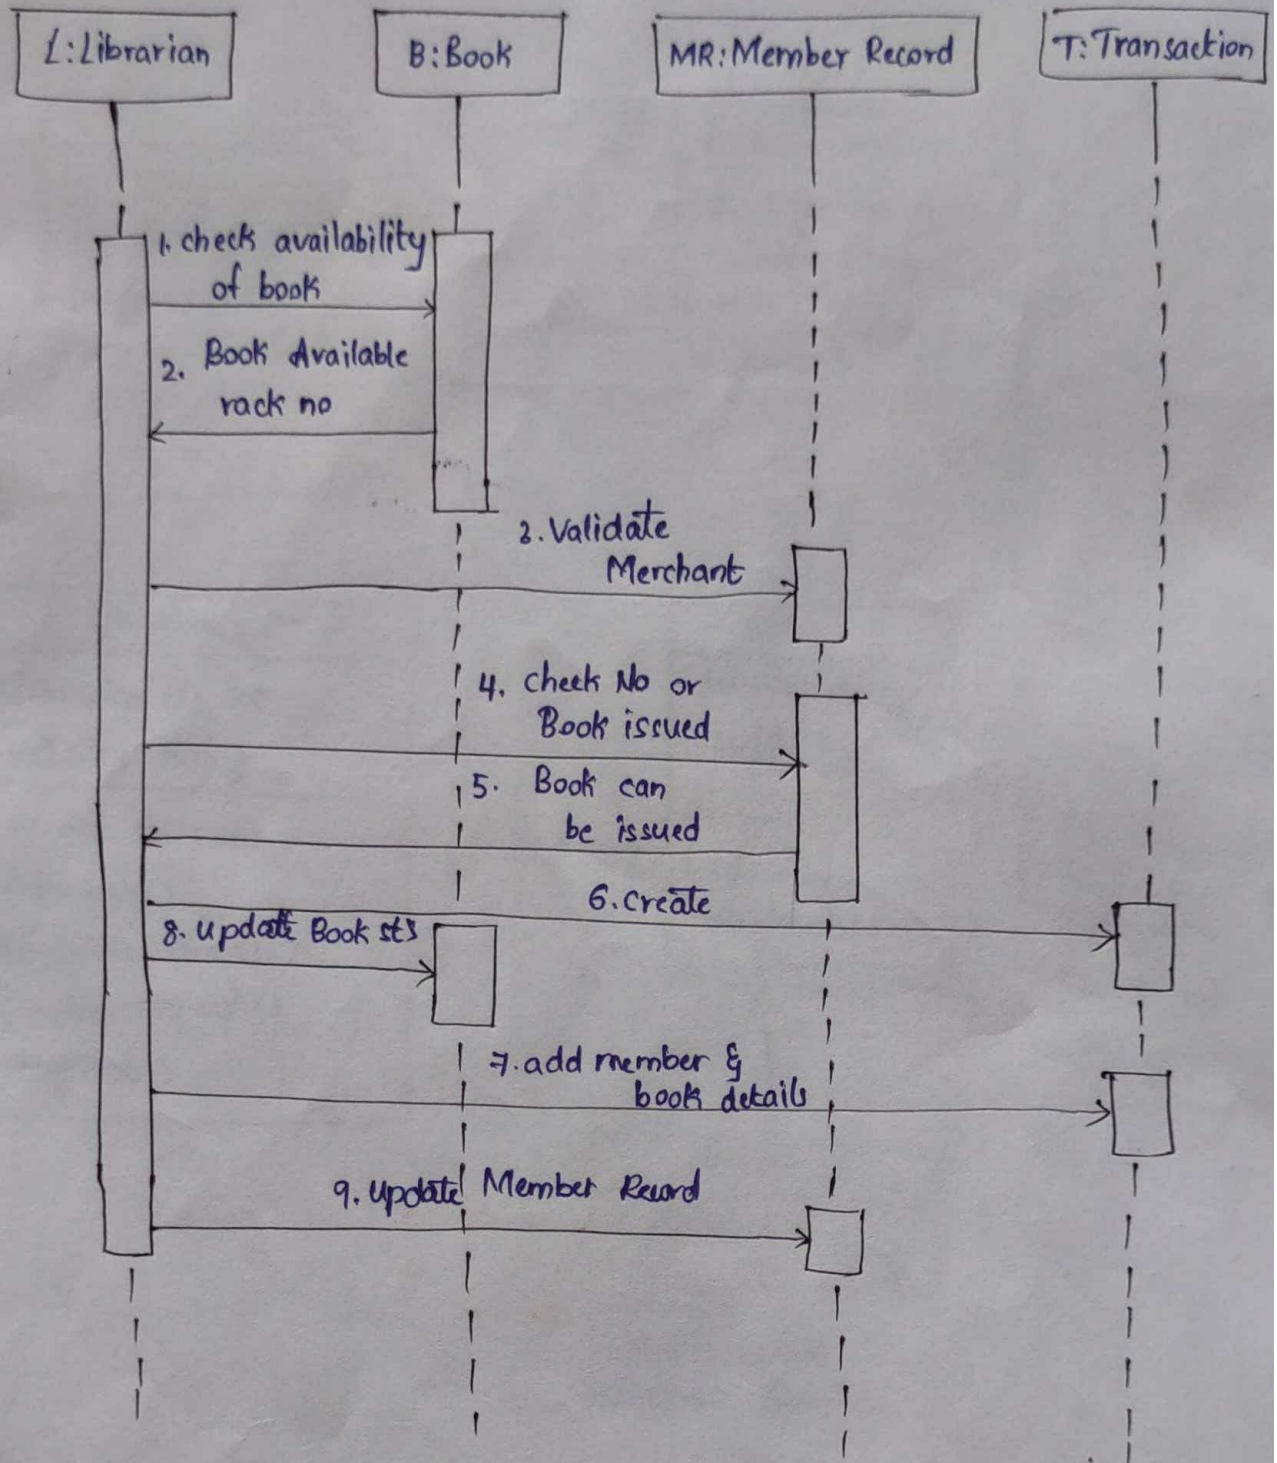 L:Librarian
B:Book
MR:Member Record
T:Transaction
1. check availability
of book
2. Book Available
rack no
3. Validate
Merchant
4. check No or
Book issued
5. Book can
be issued
6. create
8. update Book sts
7. add member &
book details
9. update Member Record